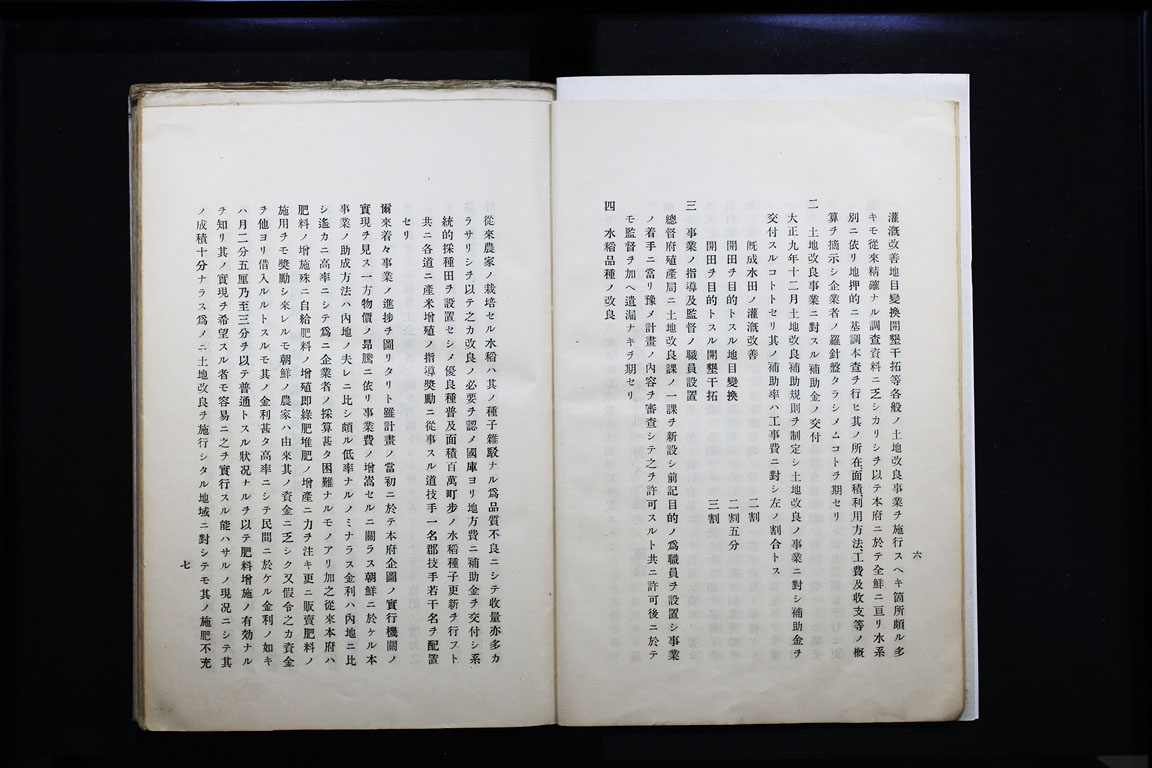 六
灌漑改善地目變換開墾干拓等各般ノ土地改良事業ヲ施行スヘキ箇所頗ル多
キモ從來精確ナル調査資料ニ乏シカリシヲ以テ本府ニ於テ全鮮ニ亘リ水系
別ニ依リ地押的ニ基調本査ヲ行ヒ其ノ所在、面積、利用方法、工費及收支等ノ槪
算ヲ摘示シ企業者ノ羅針盤タラシメムコトヲ期セリ
二 土地改良事業ニ對スル補助金ノ交付
大正九年十二月土地改良補助規則ヲ制定シ土地改良ノ事業ニ對シ補助金ヲ
交付スルコトトセリ其ノ補助率ハ工事費ニ對シ左ノ割合トス
旣成水田ノ灌漑改善 二割
開田ヲ目的トスル地目變換 二割五分
開田ヲ目的トスル開墾干拓 三割
三 事業ノ指導及監督ノ職員設置
總督府殖產局ニ土地改良課ノ一課ヲ新設シ前記目的ノ爲職員ヲ設置シ事業
ノ着手ニ當リ豫メ計畫ノ內容ヲ審查シテ之ヲ許可スルト共ニ許可後ニ於テ
モ監督ヲ加ヘ遺漏ナキヲ期セリ
四 水稻品種ノ改良
從來農家ノ栽培セル水稻ハ其ノ種子雜駁ナル爲品質不良ニシテ收量亦多カ
ラサリシヲ以テ之カ改良ノ必要ヲ認メ國庫ヨリ地方費ニ補助金ヲ交付シ系
統的採種田ヲ設置セシメ優良種普及面積百萬町步ノ水稻種子更新ヲ行フト
共ニ各道ニ產米增殖ノ指導獎勵ニ從事スル道技手一名郡技手若干名ヲ配置
セリ
爾來着々事業ノ進捗ヲ圖リタリト雖計畫ノ當初ニ於テ本府企圖ノ實行機關ノ
實現ヲ見ス一方物價ノ昂騰ニ依リ事業費ノ增嵩セルニ關ラス朝鮮ニ於ケル本
事業ノ助成方法ハ內地ノ夫レニ比シ頗ル低率ナルノミナラス金利ハ內地ニ比
シ遙カニ高率ニシテ爲ニ企業者ノ採算甚タ困難ナルモノアリ加之從來本府ハ
肥料ノ增施殊ニ自給肥料ノ增殖即綠肥堆肥ノ增產ニ力ヲ注キ更ニ販賣肥料ノ
施用ヲモ獎勵シ來レルモ朝鮮ノ農家ハ由來其ノ資金ニ乏シク又假令之カ資金
ヲ他ヨリ借入ルルトスルモ其ノ金利甚タ高率ニシテ民間ニ於ケル金利ノ如キ
ハ月二分五厘乃至三分ヲ以テ普通トスル狀況ナルヲ以テ肥料增施ノ有効ナル
ヲ知リ其ノ實現ヲ希望スル者モ容易ニ之ヲ實行スル能ハサルノ現況ニシテ其
ノ成積十分ナラス爲メニ土地改良ヲ施行シタル地域ニ對シテモ其ノ施肥不充
七